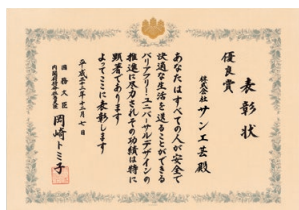 表彰状
優良賞
株式会社サン工芸殿
あなたはすべての人が安全で
快適な生活を送ることができる
バリアフリー・ユニバーサルデザインの
推進に尽力されその功績は特に
顕著であります
よってここに表彰します
平成二十二年十二月七日
国務大臣
岡崎トミ子